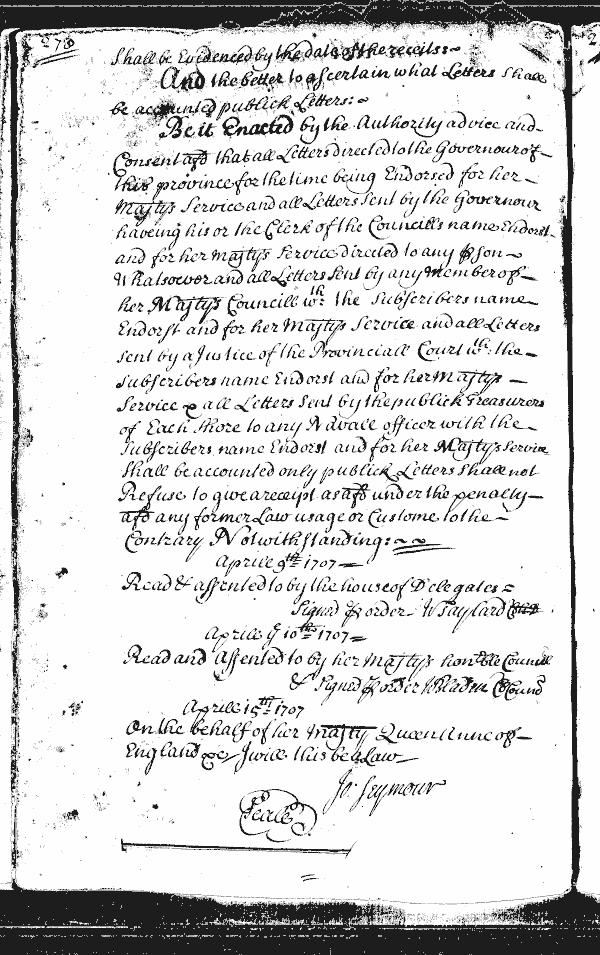 278
Shall be Evidenced by the date of the receits:~
And the better to ascertain what Letters Shall
be accounted publick Letters:~
Be it Enacted by the Authority advice and
Consent afsd that all Letters directed to the Governour of
this province for the time being Endorsed for her
Majtys Service and all Letters sent by the Governour
haveing his or the Clerk of the Councills name Endorst
and for her Majtys Service directed to any pson
Whatsoever and all Letters sent by any Member of
her Majtys Councill wth the Subscribers name
Endorst and for her Majtys Service and all Letters
sent by a Justice of the Provinciall Court wth the
Subscribers name Endorst and for her Majtys
Service & all Letters sent by the publick Treasurers
of Each Shore to any Navale officer with the
Subscribers name Endorst and for her Majtys Service
Shall be accounted only publick Letters Shall not
Refuse to give a receipt as afsd under the penalty
afsd any former Law usage or Custome to the
Contrary Notwithstanding:~~
Aprile 9th 1707
Read & assented to by the house of Delegates
Signed p order W Taylard
Aprile y 10th 1707
Read and Assented to by her Majtys honble Councill
& Signed p order WBladen Cl Council
Aprile 15th 1707
On the behalf of her Majty Queen Anne of
England &c I will this be a Law
Jo: Seymour
Seale